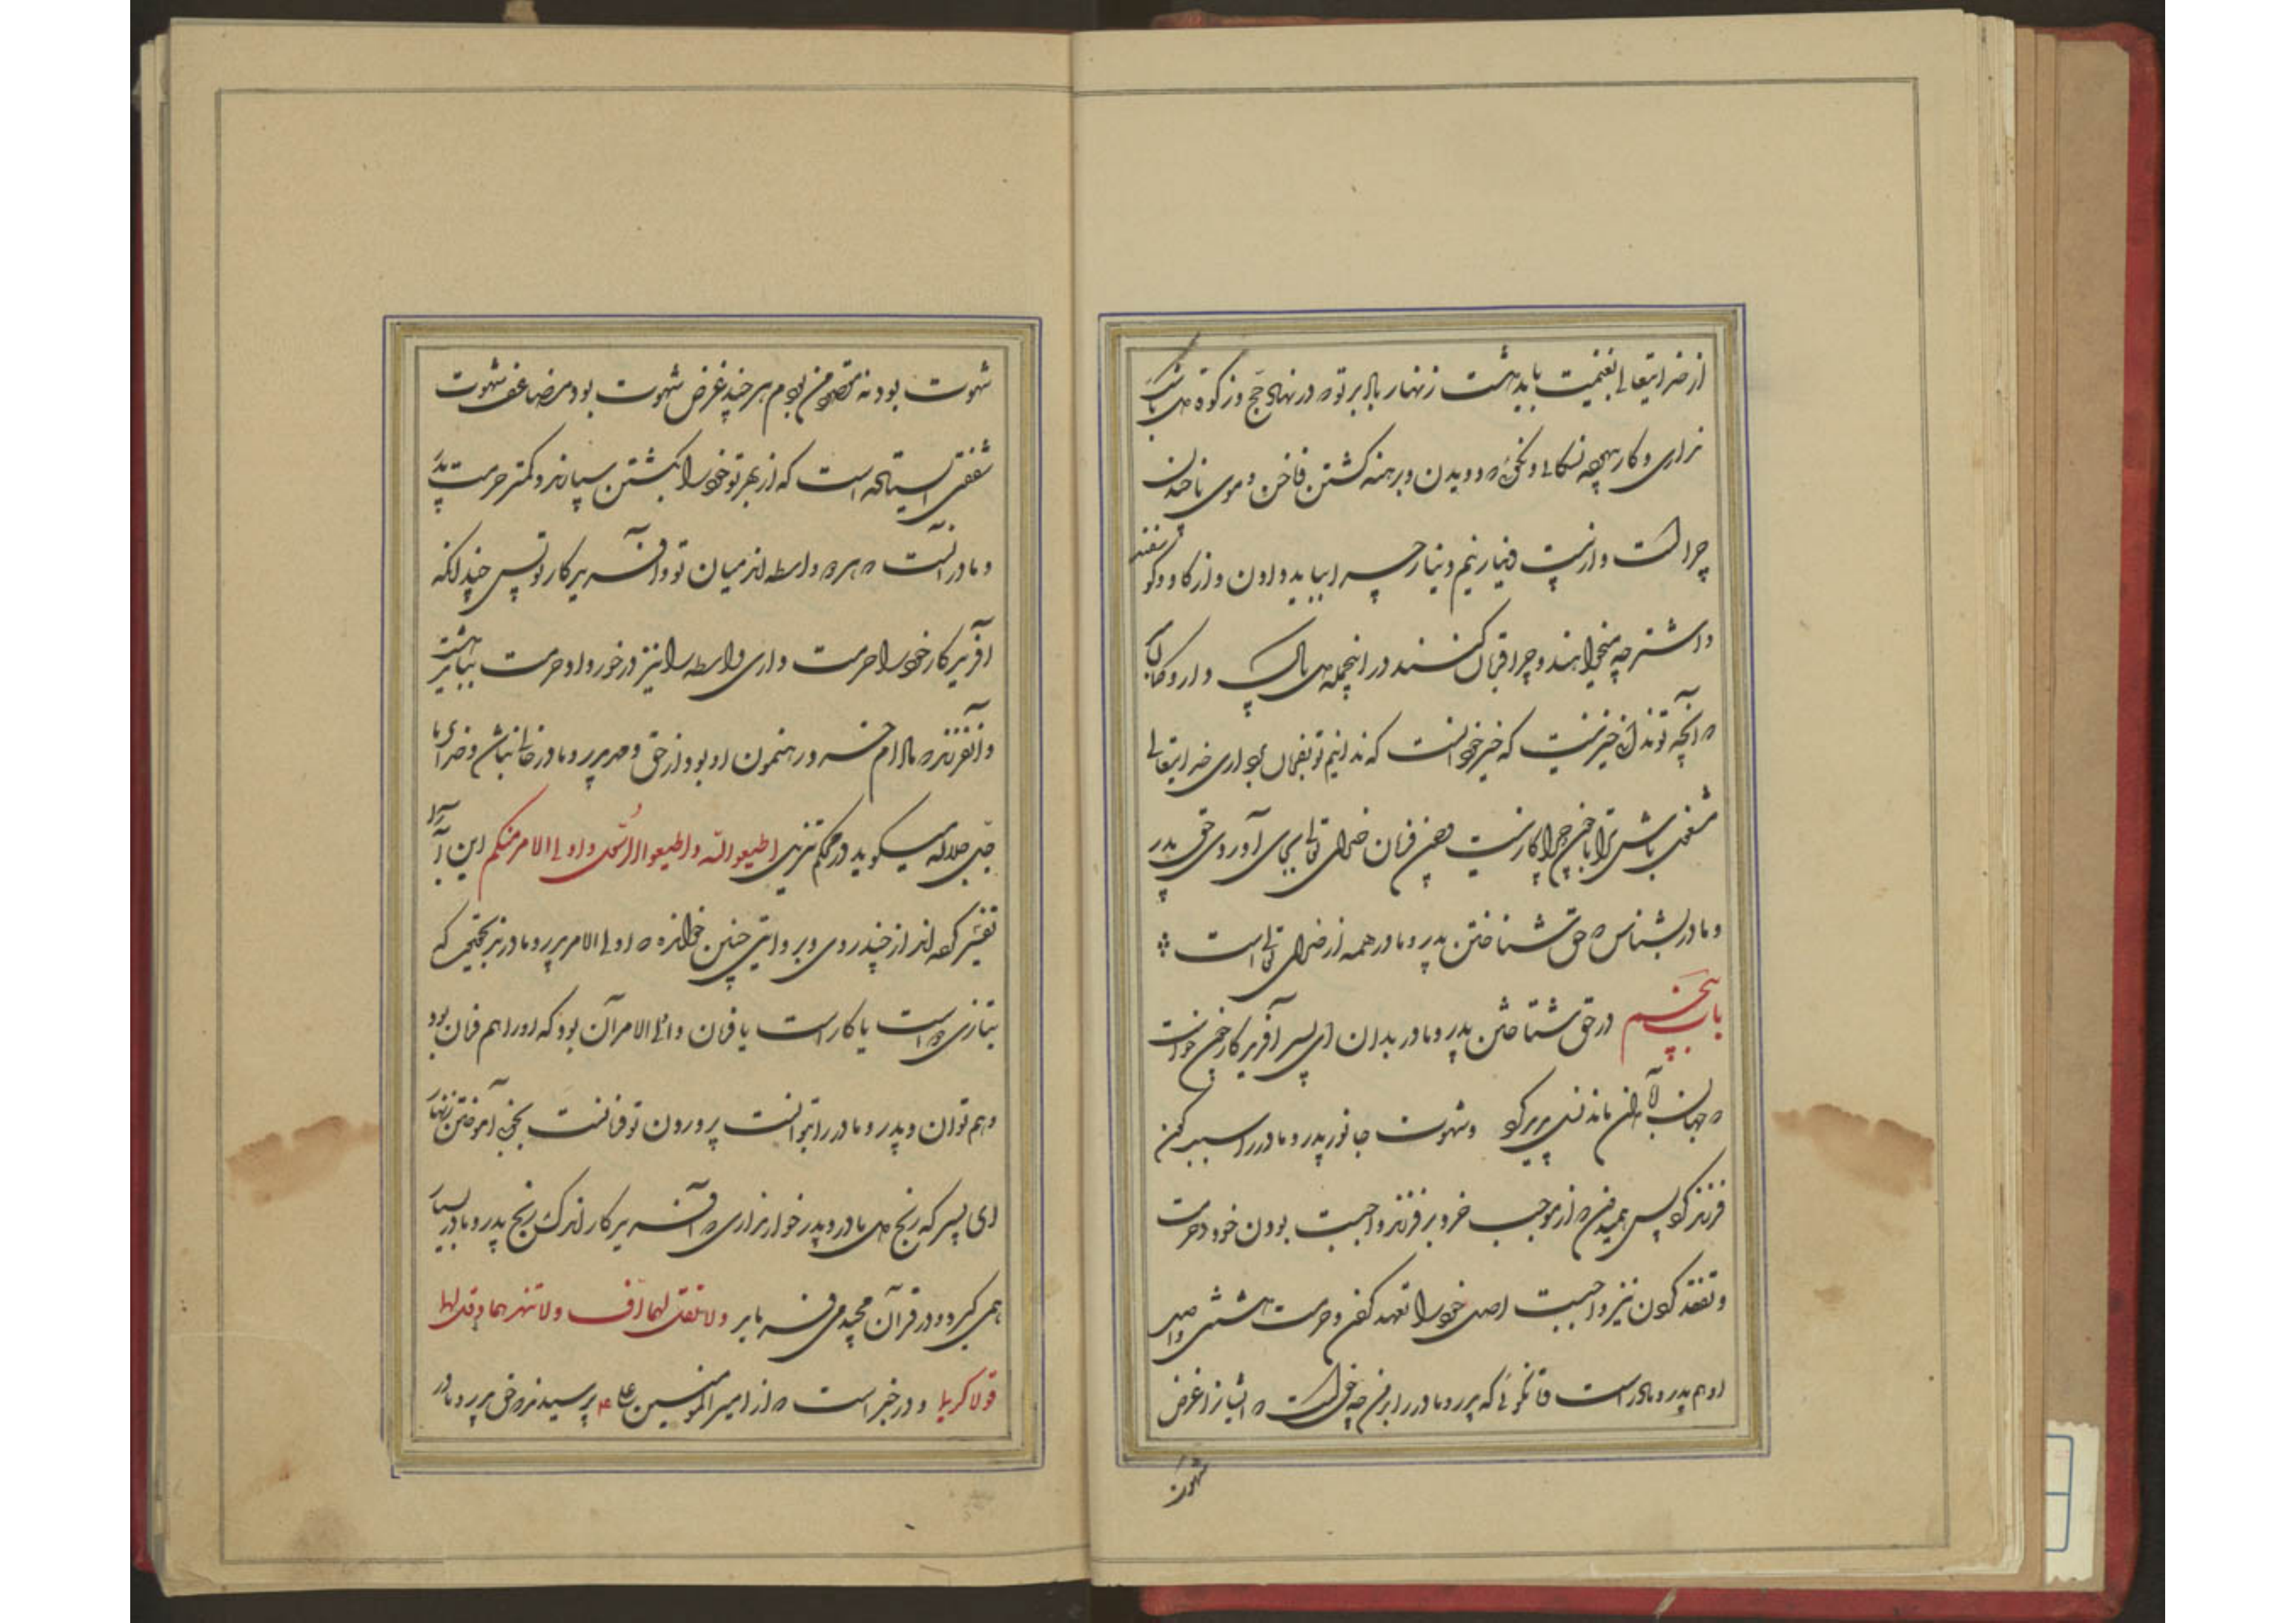 از خدایتعالی بغنیمت باید داشت زنهار بار بر تو که در نهاد حج و زکوة دل با شک
نداری و کار بیهوده نسکالی و نگوئی که دویدن و برهنه گشتن و ناخن و موی ناچیدن
چراست و از بیست دینار نیم دینار چرا بباید دادن و از گاو و گوسفند
و اشتر چه میخواهند و چرا قربان کنند در اینجمله دل پاک دار و گمان
که آنچه تو ندانی خیر نیست که خیر خود آنست که ندانیم تو بفرمان برداری خدایتعالی
مشغول باش ترا با چون و چرا کار نیست و چون فرمان خدای تعالی بجای آوردی حق پدر
و مادر بشناس که حق شناختن پدر و مادر هم از خدای تعالی است
باب پنجم در حق شناختن پدر و مادر بدان ای پسر آفریدگار چون خواست
که جهان آبادان ماند نسل پدید کرد و شهوت جانور پدر و مادر را سبب کون
فرزند کرد پس همیدون از موجب خرد بر فرزند واجبست بودن خود حرمت
و تفقد کردن نیز واجبست اصل خود را تعهد کردن و حرمت داشتن و اصل
او هم پدر و مادر است و تا نگوئی که پدر و مادر را بر من چه حق است که ایشان را غرض
شهوت
شهوت بود نه مقصود من بودم هر چند غرض شهوت بود مضاعف شهوت
شفقتی ایستاده است که از بهر تو خود را بکشتن سپارند و کمتر حرمت پدر
و مادر آنست که هر دو واسطه‌اند میان تو و آفریدگار تو پس چندانکه
آفریدگار خود را حرمت داری واسطه را نیز در خور او حرمت بباید داشت
و آنفرزند که مادام خرد رهنمون او بود از حق و مهر پدر و مادر خالی نباشد و خدای ما
جل جلاله میگوید در محکم تنزیل اطیعوا الله و اطیعوا الرسول و اولی الامر منکم این آیه را
تفسیر کرده‌اند از چند روی و بروایتی چنین خوانده‌ام که اولی الامر پدر و مادرند بحقیقت که
بتازی امر است یا کار است یا فرمان و اولی الامر آن بود که او را هم فرمان بود
و هم توان و پدر و مادر را توانست پرورون تو فرمانست بخوبی آموختن زنهار
ای پسر که رنج دل مادر و پدر خوار نداری که آفریدگار اندک رنج پدر و مادر بسیار
همی گیرد و در قرآن مجید می فرماید و لا تقل لهما اف و لا تنهرهما و قل لهما
قولا کریما و در خبر است که از امیر المومنین علی ع پرسیدند که حق پدر و مادر